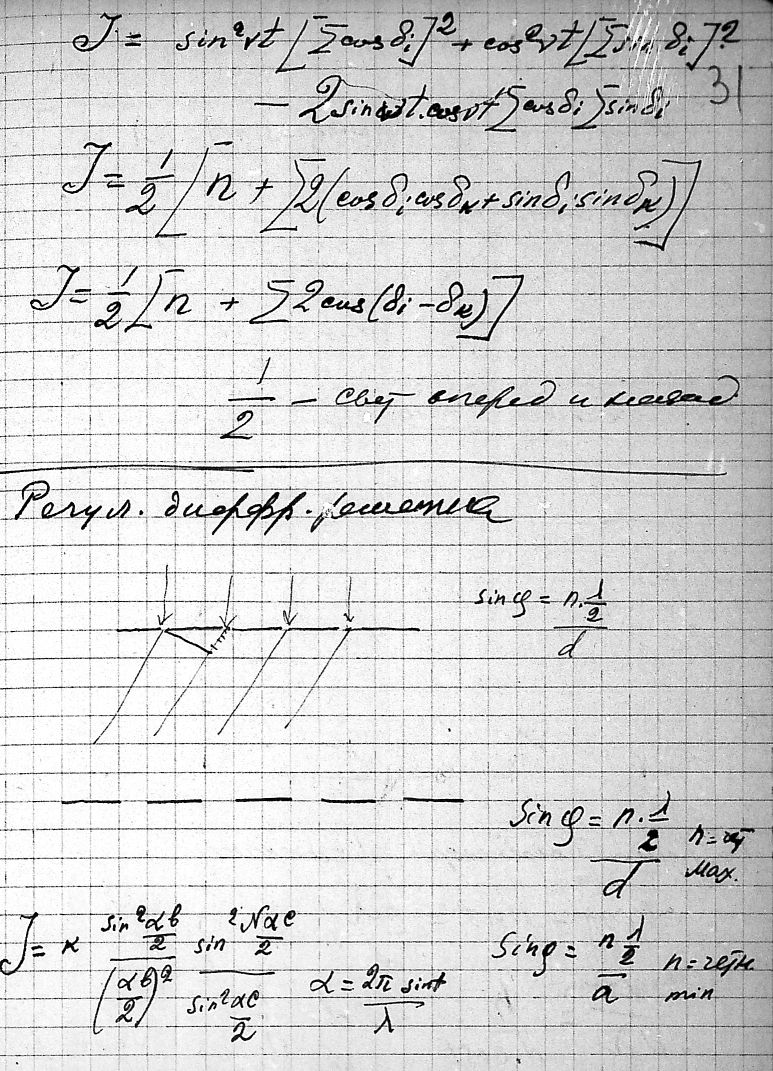 J = sin²νt [∑cos δᵢ]² + cos²νt [∑sin δᵢ]²
31
− 2 sin νt · cos νt ∑cos δᵢ ∑sin δᵢ
J = 1/2 [n + ∑2(cos δᵢ cos δₖ + sin δᵢ sin δₖ)]
J = 1/2 [n + ∑2 cos(δᵢ − δₖ)]
1/2 – свет вперед и назад
Регул. дифр. решетка
sin φ = (n · λ/2)/d
sin φ = (n · λ/2)/d
max.
J = к (sin² αb/2)/(αb/2)² (sin² Nαc/2)/(sin² αc/2) α = (2π sin)/λ
sin φ = (n λ/2)/a n = четн. min